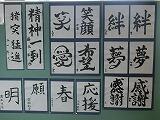 猪突猛進
精神一到
笑
笑顔
絆
絆
希望
夢
夢
明
願
春
応援
感謝
感謝